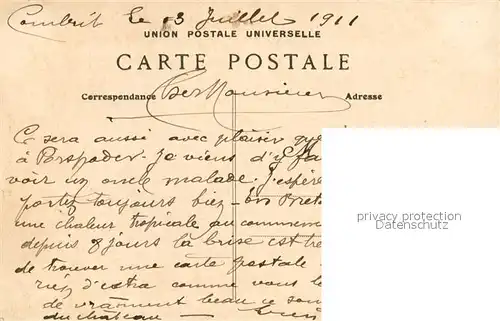 Combrit le 13 Juillet 1911
UNION POSTALE UNIVERSELLE
CARTE POSTALE
Correspondance Cher Monsieur Adresse
Ce sera aussi avec plaisir que
à Porspoder. Je viens d'y
voir un oncle malade. J'espère
portez toujours bien
une chaleur tropicale au commence
depuis 8 jours la brise est
de trouver une carte postale
d'extra comme vous
de vraiment beau ce sont
du château
privacy protection
Datenschutz